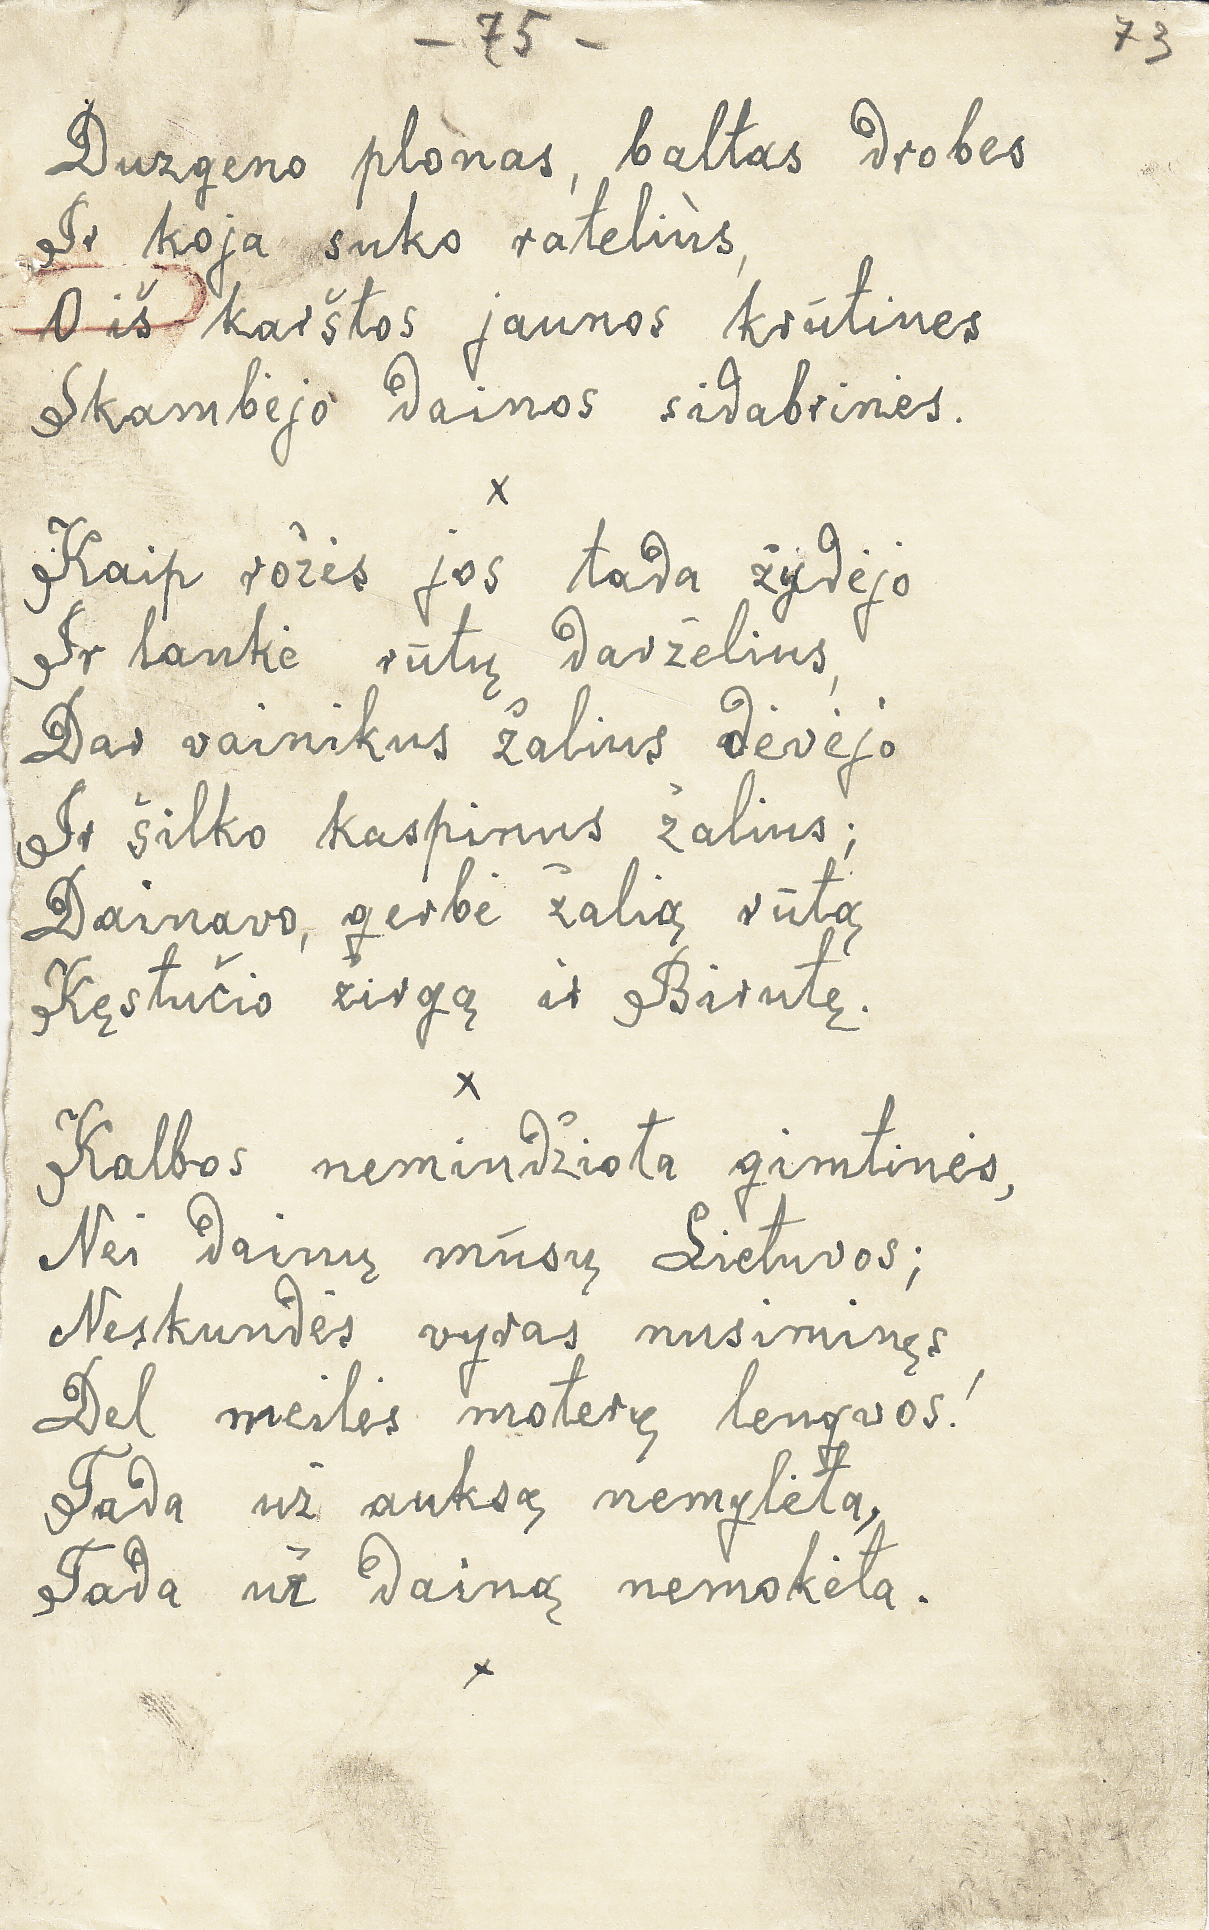 - 75 -
73
Duzgeno plonas, baltas drobes
Ir koja suko ratelius,
O iš karštos jaunos krūtines
Skambėjo dainos sidabrinės.
x
Kaip rožės jos tada žydėjo
Ir lankė rūtų darželius,
Dar vainikus žalius dėvėjo
Ir šilko kaspinus žalius;
Dainavo, gerbė žalią rūtą
Kęstučio žirgą ir Birutę.
x
Kalbos nemindžiota gimtinės,
Nei dainų mūsų Lietuvos;
Neskundės vyras nusiminęs
Del meilės moterų lengvos!
Tada už auksą nemylėta,
Tada už dainą nemokėta.
x